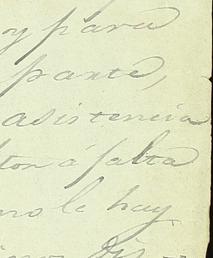 y para
pante,
asistencia
ton á falta
no le hay